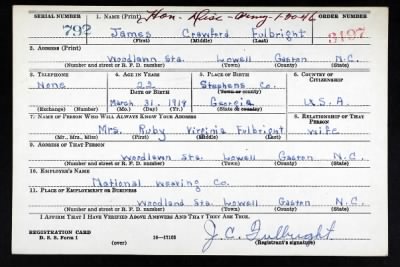 SERIAL NUMBER 1. NAME (Print) Hon. Disc. Army 1-30-46 ORDER NUMBER
792 James Crawford Fulbright 3197
(First) (Middle) (Last)
2. ADDRESS (Print)
Woodlawn Sta. Lowell Gaston N.C.
(Number and street or R. F. D. number) (Town) (County) (State)
3. TELEPHONE 4. AGE IN YEARS 5. PLACE OF BIRTH 6. COUNTRY OF CITIZENSHIP
None 22 Stephens Co.
DATE OF BIRTH (Town or county)
March 31. 1919 Georgia U.S.A
(Exchange) (Number) (Mo.) (Day) (Yr.) (State or country)
7. NAME OF PERSON WHO WILL ALWAYS KNOW YOUR ADDRESS 8. RELATIONSHIP OF THAT PERSON
Mrs. Ruby Virginia Fulbright Wife
(Mr., Mrs., Miss) (First) (Middle) (Last)
9. ADDRESS OF THAT PERSON
Woodlawn Sta. Lowell Gaston N.C.
(Number and street or R. F. D. number) (Town) (County) (State)
10. EMPLOYER'S NAME
National Weaving Co.
11. PLACE OF EMPLOYMENT OR BUSINESS
Woodland Sta Lowell Gaston N.C.
(Number and street or R. F. D. number) (Town) (County) (State)
I AFFIRM THAT I HAVE VERIFIED ABOVE ANSWERS AND THAT THEY ARE TRUE.
REGISTRATION CARD
D. S. S. Form 1 (over) 16—17105 J.C. Fulbright
(Registrant's signature)